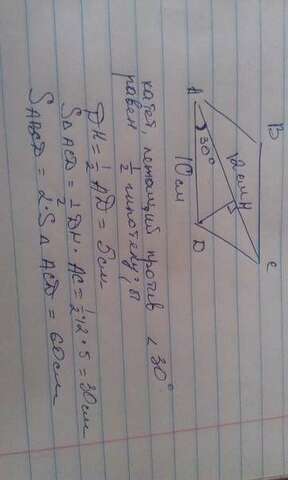 B
C
12 см H
A 30°
D
10 см
катет, лежащий против ∠30°
равен 1/2 гипотенузы
DH = 1/2 AD = 5см
S△ACD = 1/2 DH · AC = 1/2 · 12 · 5 = 30см
SABCD = 2 · S△ACD = 60см